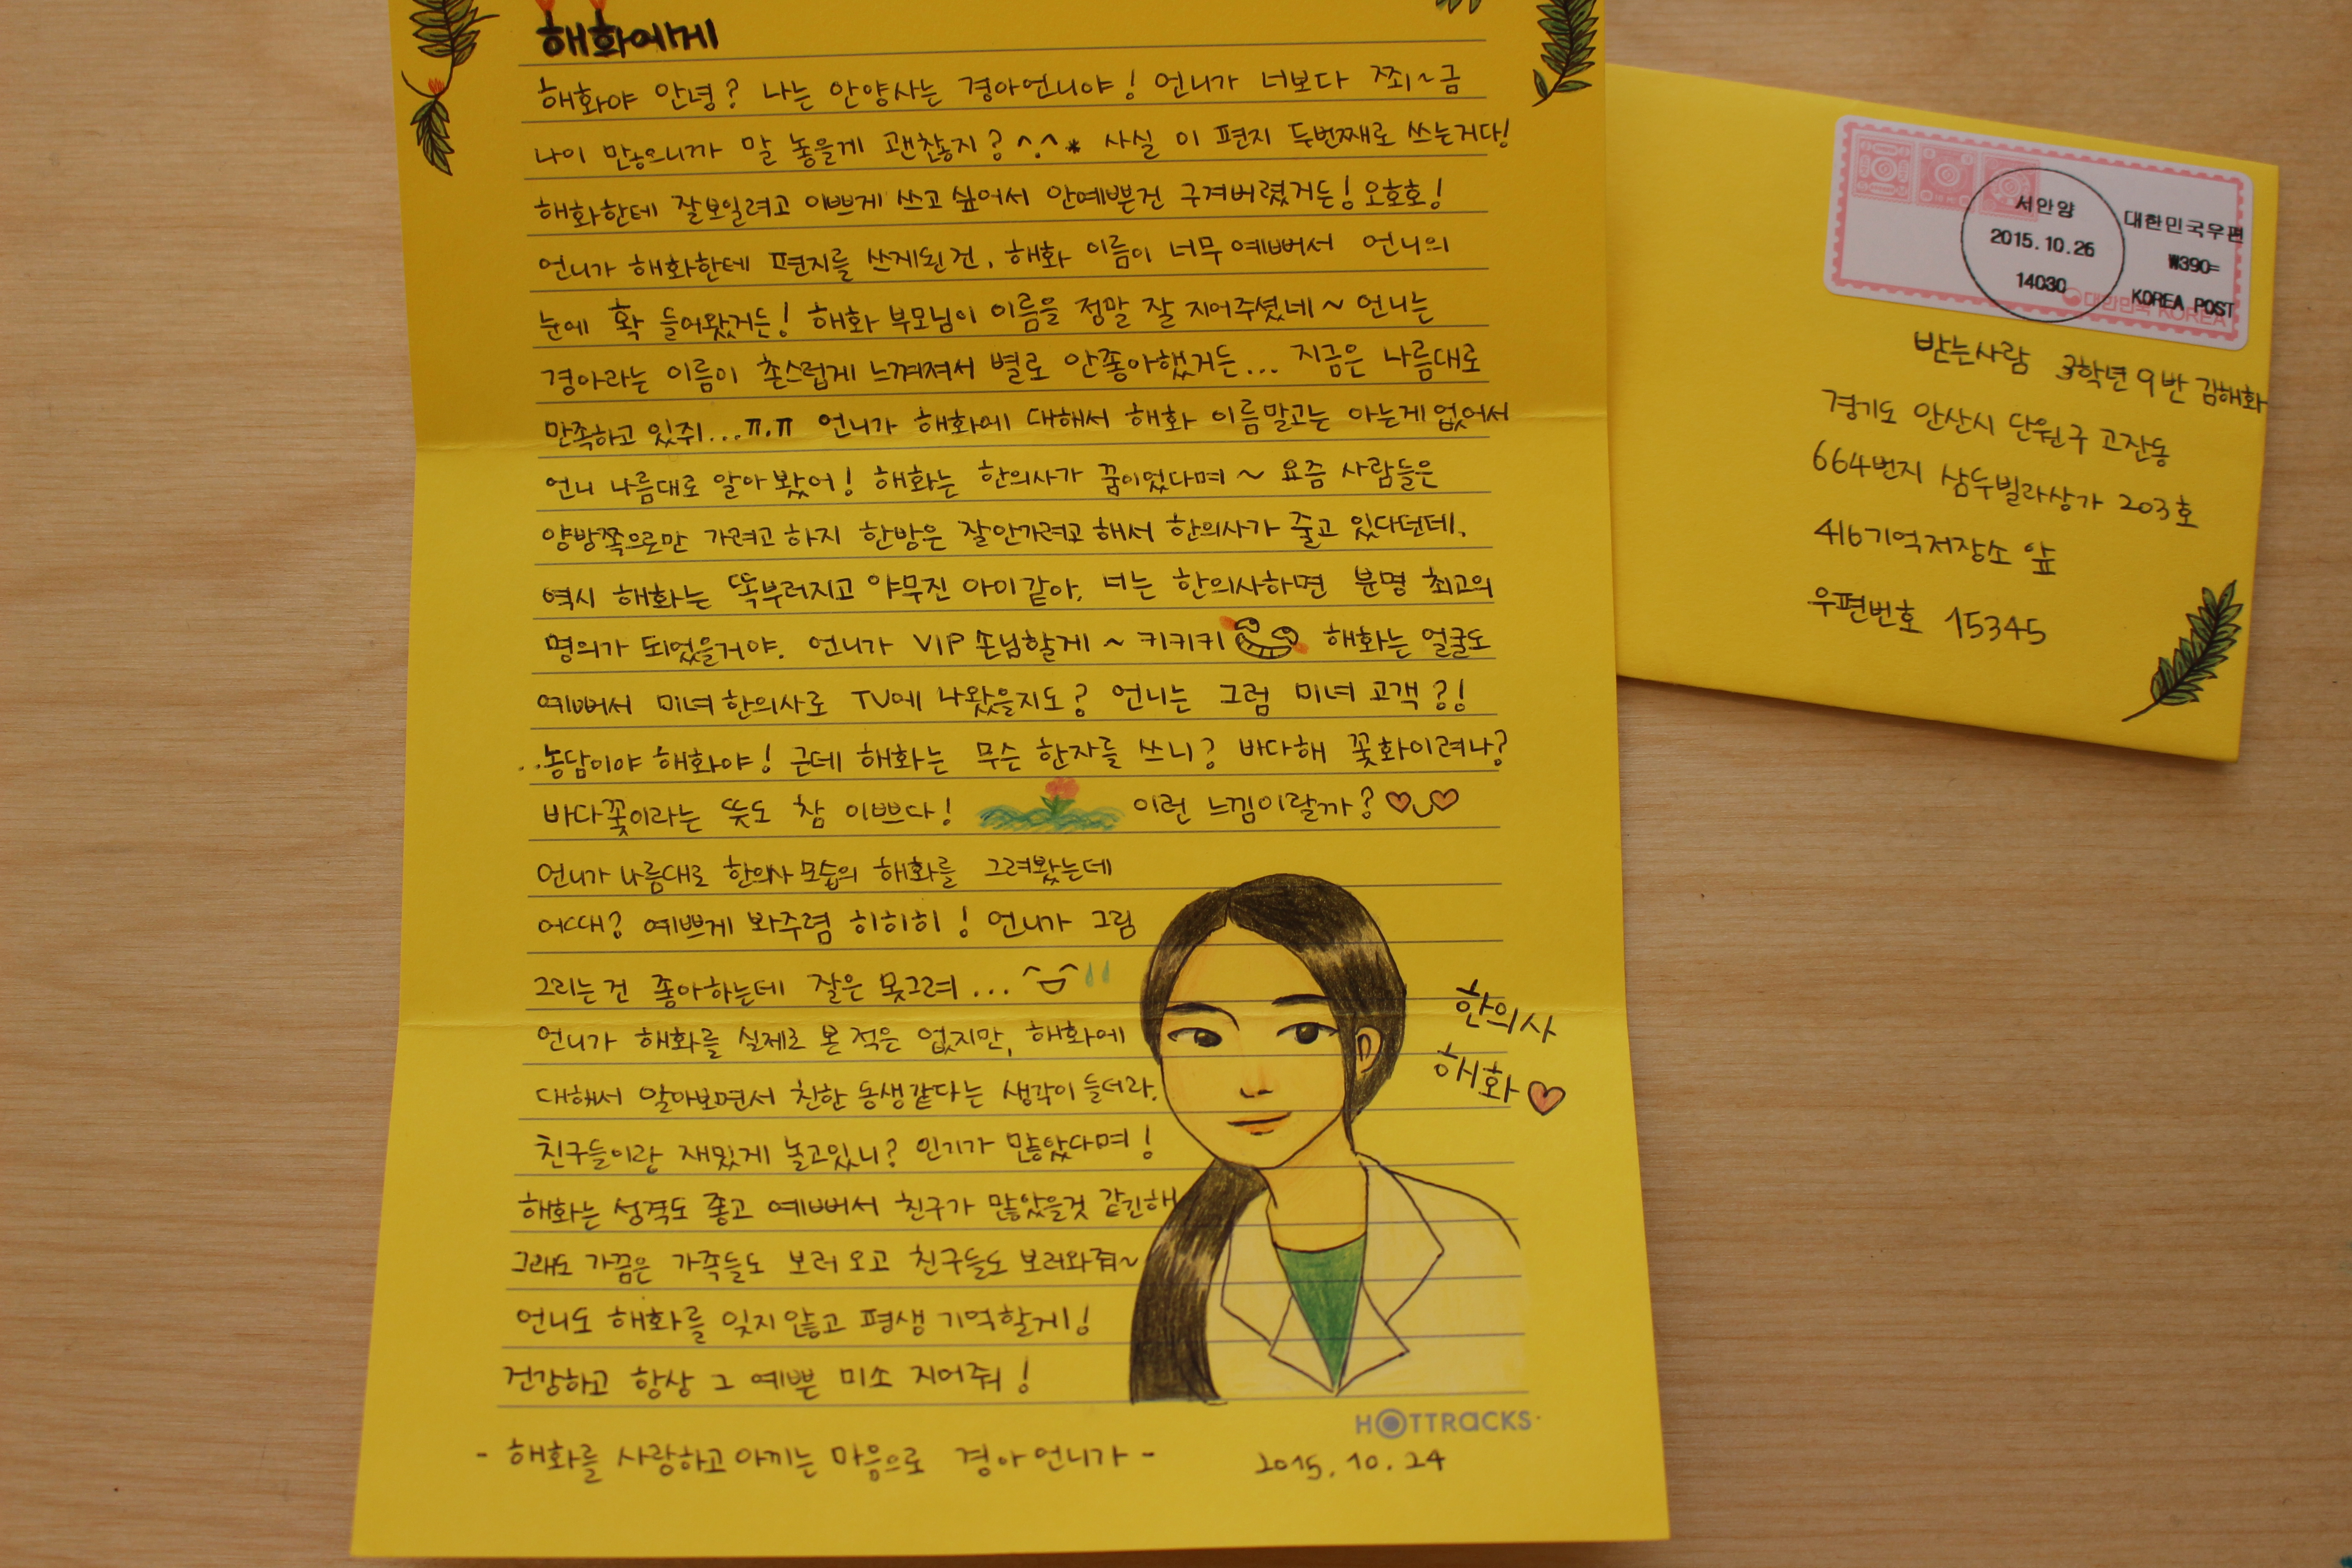 해화에게
해화야 안녕? 나는 안양사는 경아언니야! 언니가 너보다 쬐~금
나이 많으니까 말 놓을게 괜찮지? ^.^* 사실 이 편지 두번째로 쓰는거다!
해화한테 잘보일려고 이쁘게 쓰고 싶어서 안예쁜건 구겨버렸거든! 오호호!
언니가 해화한테 편지를 쓰게된건, 해화 이름이 너무 예뻐서 언니의
눈에 확 들어왔거든! 해화 부모님이 이름을 정말 잘 지어주셨네~ 언니는
경아라는 이름이 촌스럽게 느껴져서 별로 안좋아했거든... 지금은 나름대로
만족하고 있쥐...ㅠ.ㅠ 언니가 해화에 대해서 해화 이름말고는 아는게 없어서
언니 나름대로 알아봤어! 해화는 한의사가 꿈이었다며~ 요즘 사람들은
양방쪽으로만 가려고 하지 한방은 잘안가려고 해서 한의사가 줄고 있다던데,
역시 해화는 똑부러지고 야무진 아이같아. 너는 한의사하면 분명 최고의
명의가 되었을거야. 언니가 VIP 손님할게~ 키키키 해화는 얼굴도
예뻐서 미녀한의사로 TV에 나왔을지도? 언니는 그럼 미녀 고객?!
..농담이야 해화야! 근데 해화는 무슨 한자를 쓰니? 바다해 꽃화이려나?
바다꽃이라는 뜻도 참 이쁘다! 이런 느낌이랄까? ♡◡♡
언니가 나름대로 한의사 모습의 해화를 그려봤는데
어때? 예쁘게 봐주렴 히히히! 언니가 그림
그리는건 좋아하는데 잘은 못그려...
언니가 해화를 실제로 본 적은 없지만, 해화에
대해서 알아보면서 친한 동생같다는 생각이 들더라.
친구들이랑 재밌게 놀고있니? 인기가 많았다며!
해화는 성격도 좋고 예뻐서 친구가 많았을것 같긴해
그래도 가끔은 가족들도 보러 오고 친구들도 보러와줘~
언니도 해화를 잊지 않고 평생 기억할게!
건강하고 항상 그 예쁜 미소 지어줘!
한의사
해화♡
HOTTRACKS
- 해화를 사랑하고 아끼는 마음으로 경아 언니가 -
2015. 10. 24
서안양
2015.10.26
14030
대한민국우편
₩390=
KOREA POST
대한민국 KOREA
받는사람 3학년 9반 김해화
경기도 안산시 단원구 고잔동
664번지 삼두빌라상가 203호
416기억저장소 앞
우편번호 15345